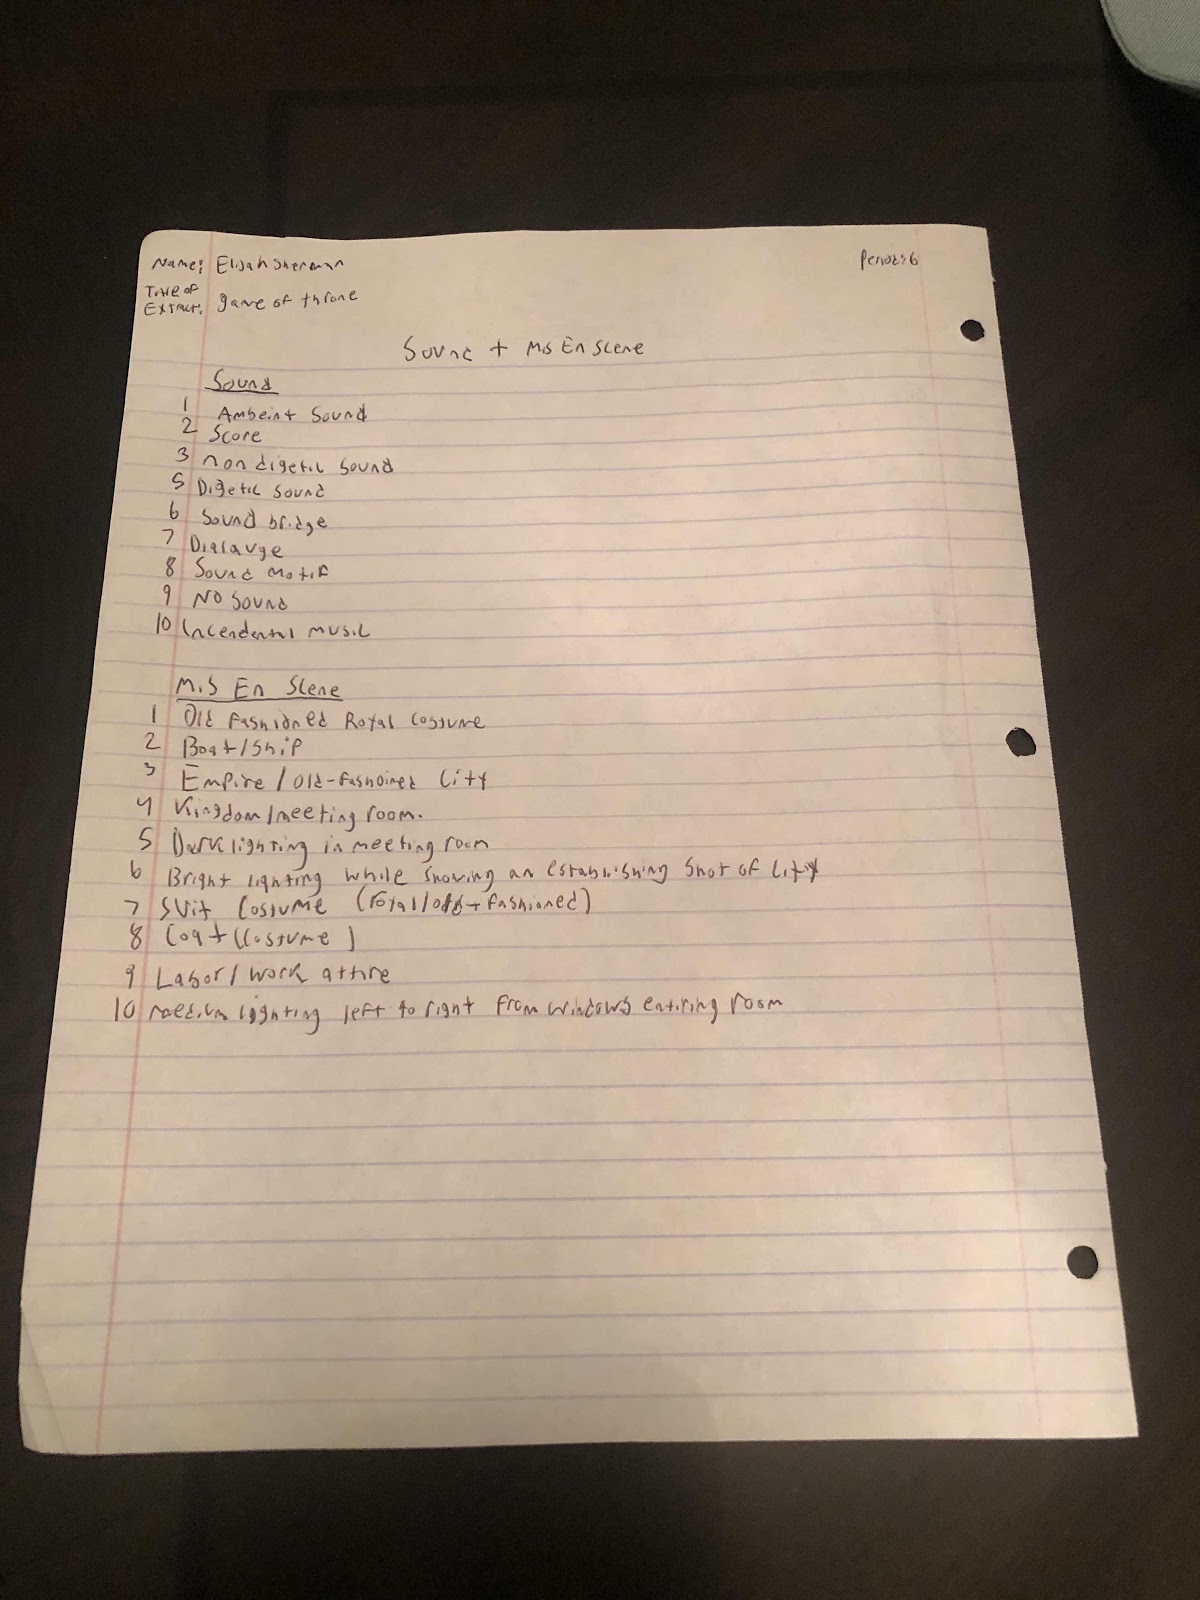 Name: Elijah Sherman Period: 6
Title of
Extract: game of throne
Sound + Mis En Scene
Sound
1 Ambeint Sound
2 Score
3 non digetic sound
5 Digetic sound
6 Sound bridge
7 Dialauge
8 Sound Motif
9 No Sound
10 Incendental music
Mis En Scene
1 Old fashioned Royal Costume
2 Boat/Ship
3 Empire/Old-fashoined City
4 Kingdom/meeting room.
5 Dark lighting in meeting room
6 Bright lighting while showing an establishing shot of City
7 Suit Costume (royal/old+fashioned)
8 Coat (Costume)
9 Labor/work attire
10 medium lighting left to right from windows entiring room